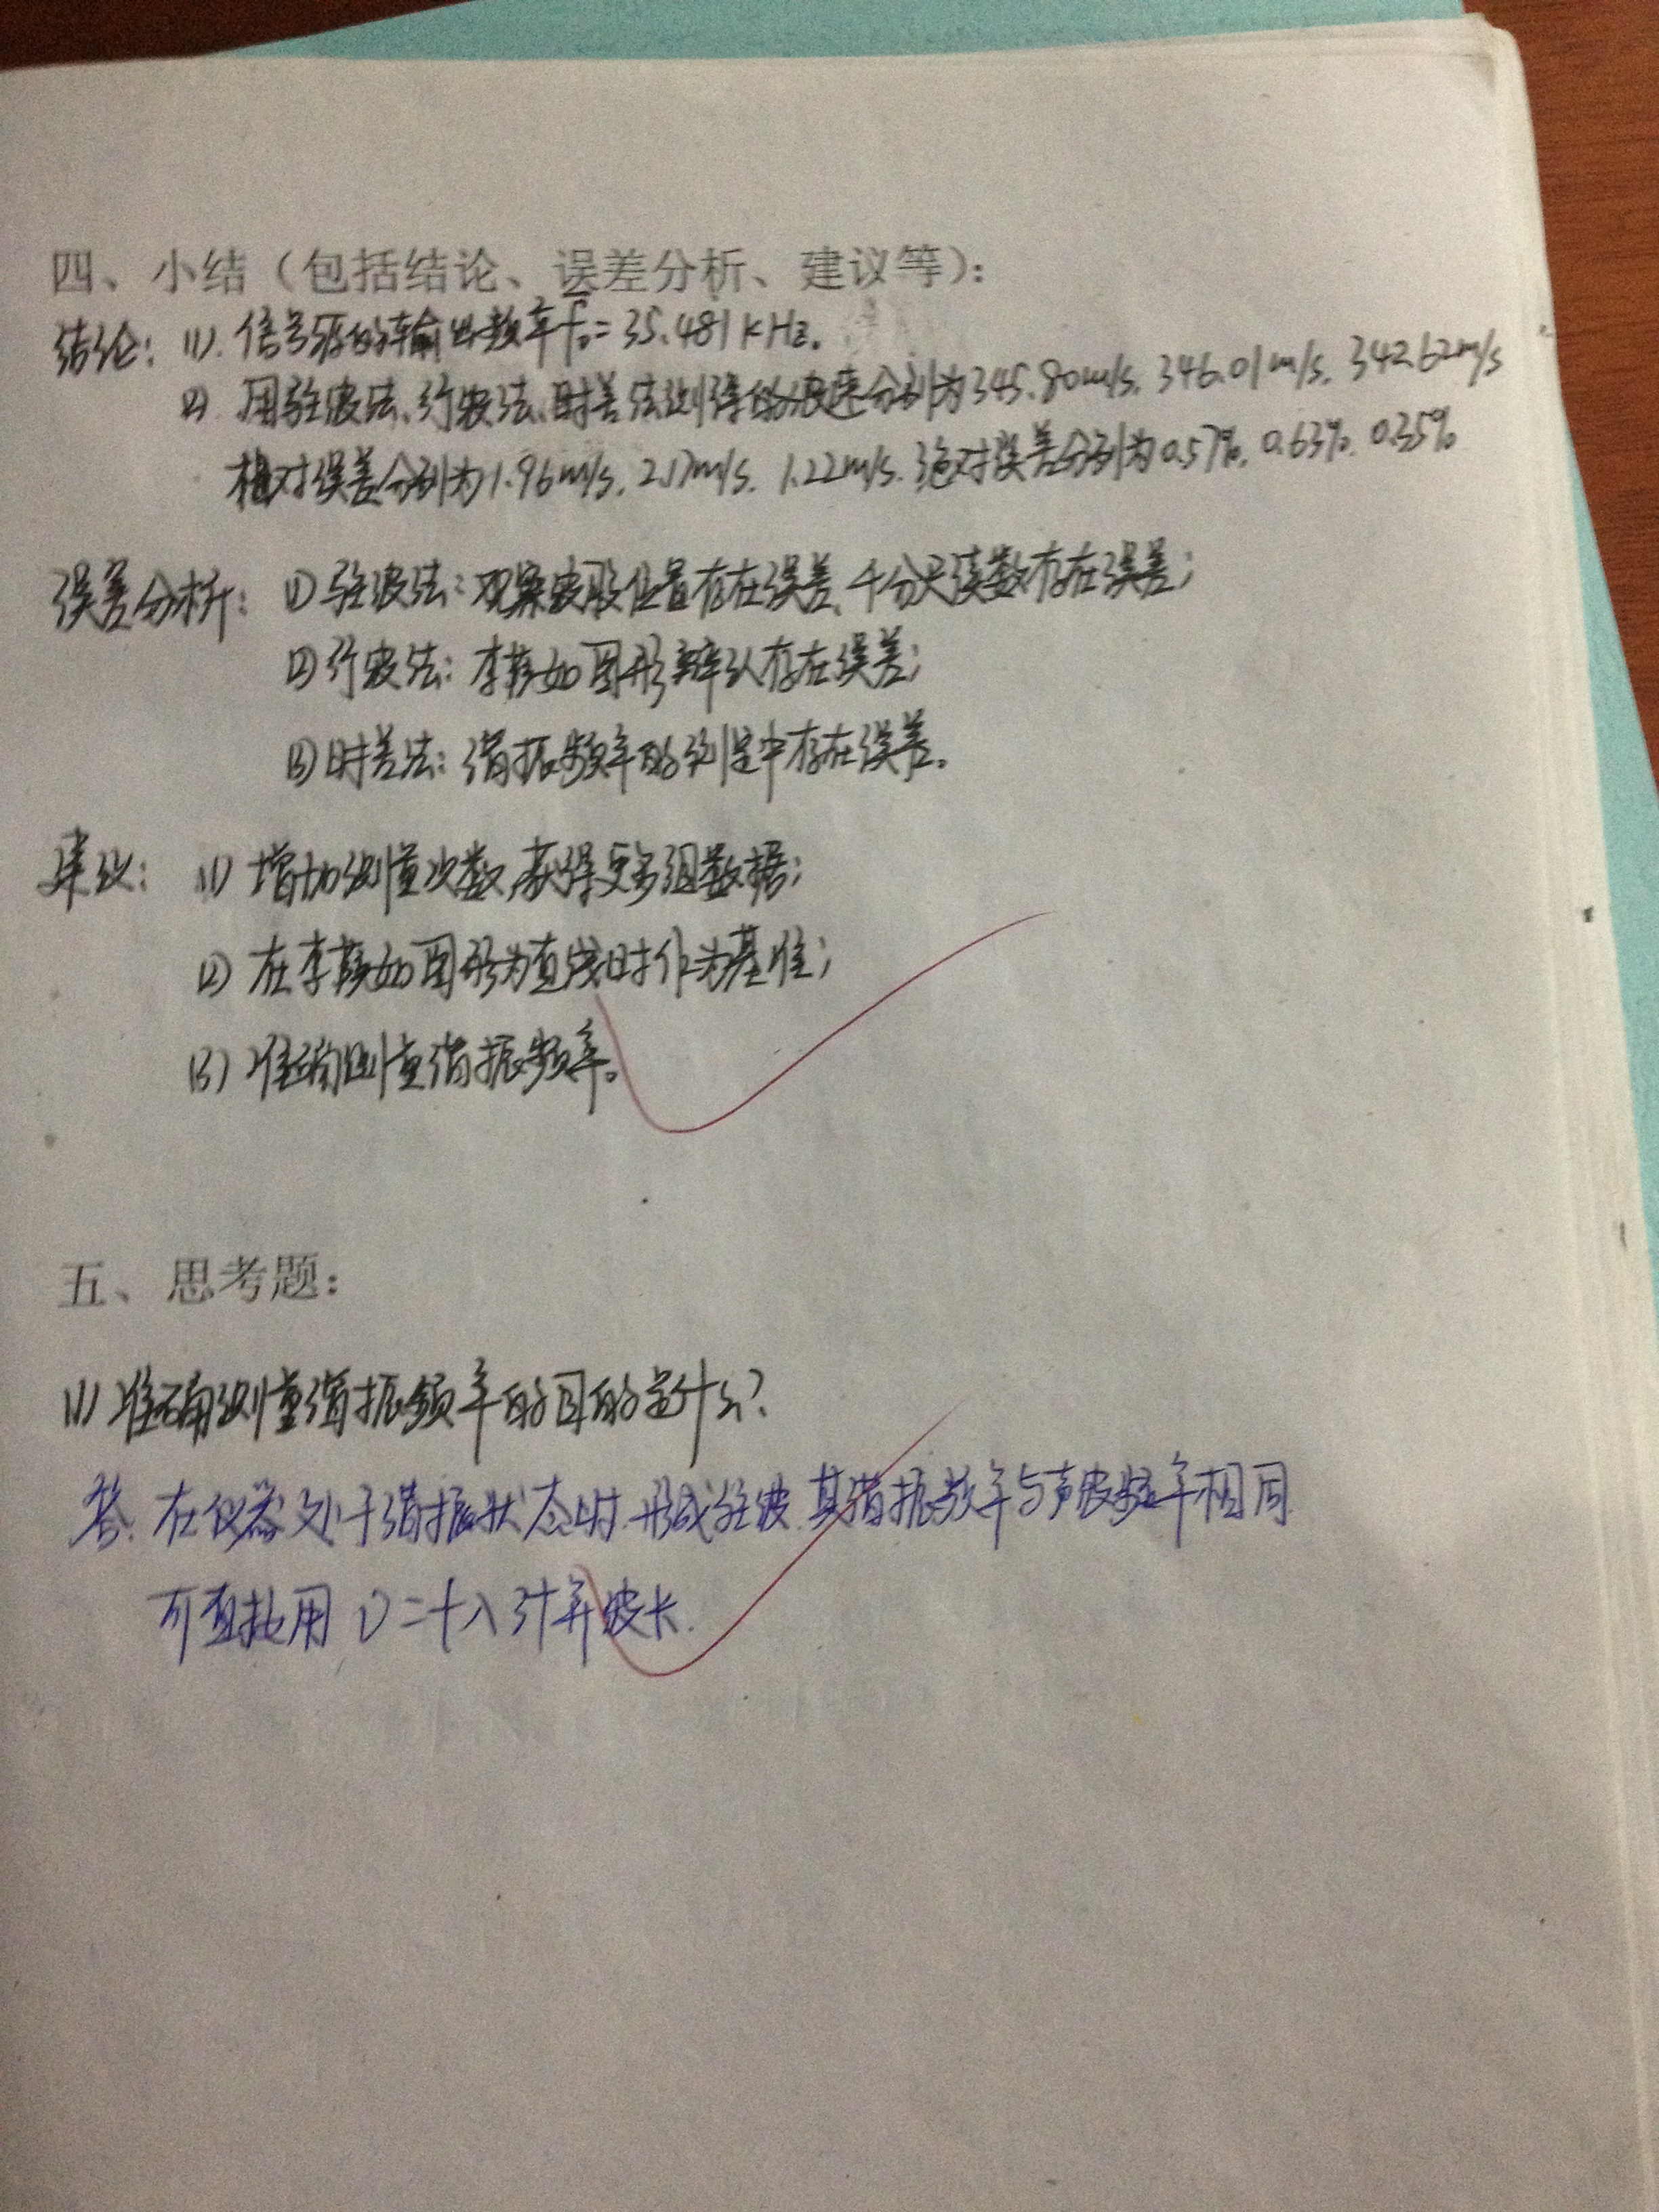 四、小结（包括结论、误差分析、建议等）：
结论：(1). 信号源的输出频率f₀=35.481KHz。
(2). 用驻波法、行波法、时差法测得的波速分别为345.80m/s, 346.01m/s, 342.62m/s
相对误差分别为1.96m/s, 2.17m/s, 1.22m/s. 绝对误差分别为0.57%, 0.63%, 0.35%
误差分析：(1) 驻波法：观察波形位置存在误差、千分尺读数存在误差；
(2) 行波法：李萨如图形辨认存在误差；
(3) 时差法：谐振频率的测定中存在误差。
建议：(1) 增加测量次数,获得更多组数据；
(2) 在李萨如图形为直线时作为基准；
(3) 准确测量谐振频率。
五、思考题：
(1) 准确测量谐振频率的目的是什么？
答. 在仪器处于谐振状态时.形成驻波.其谐振频率与声波频率相同
可直接用 υ=fλ 计算波长.